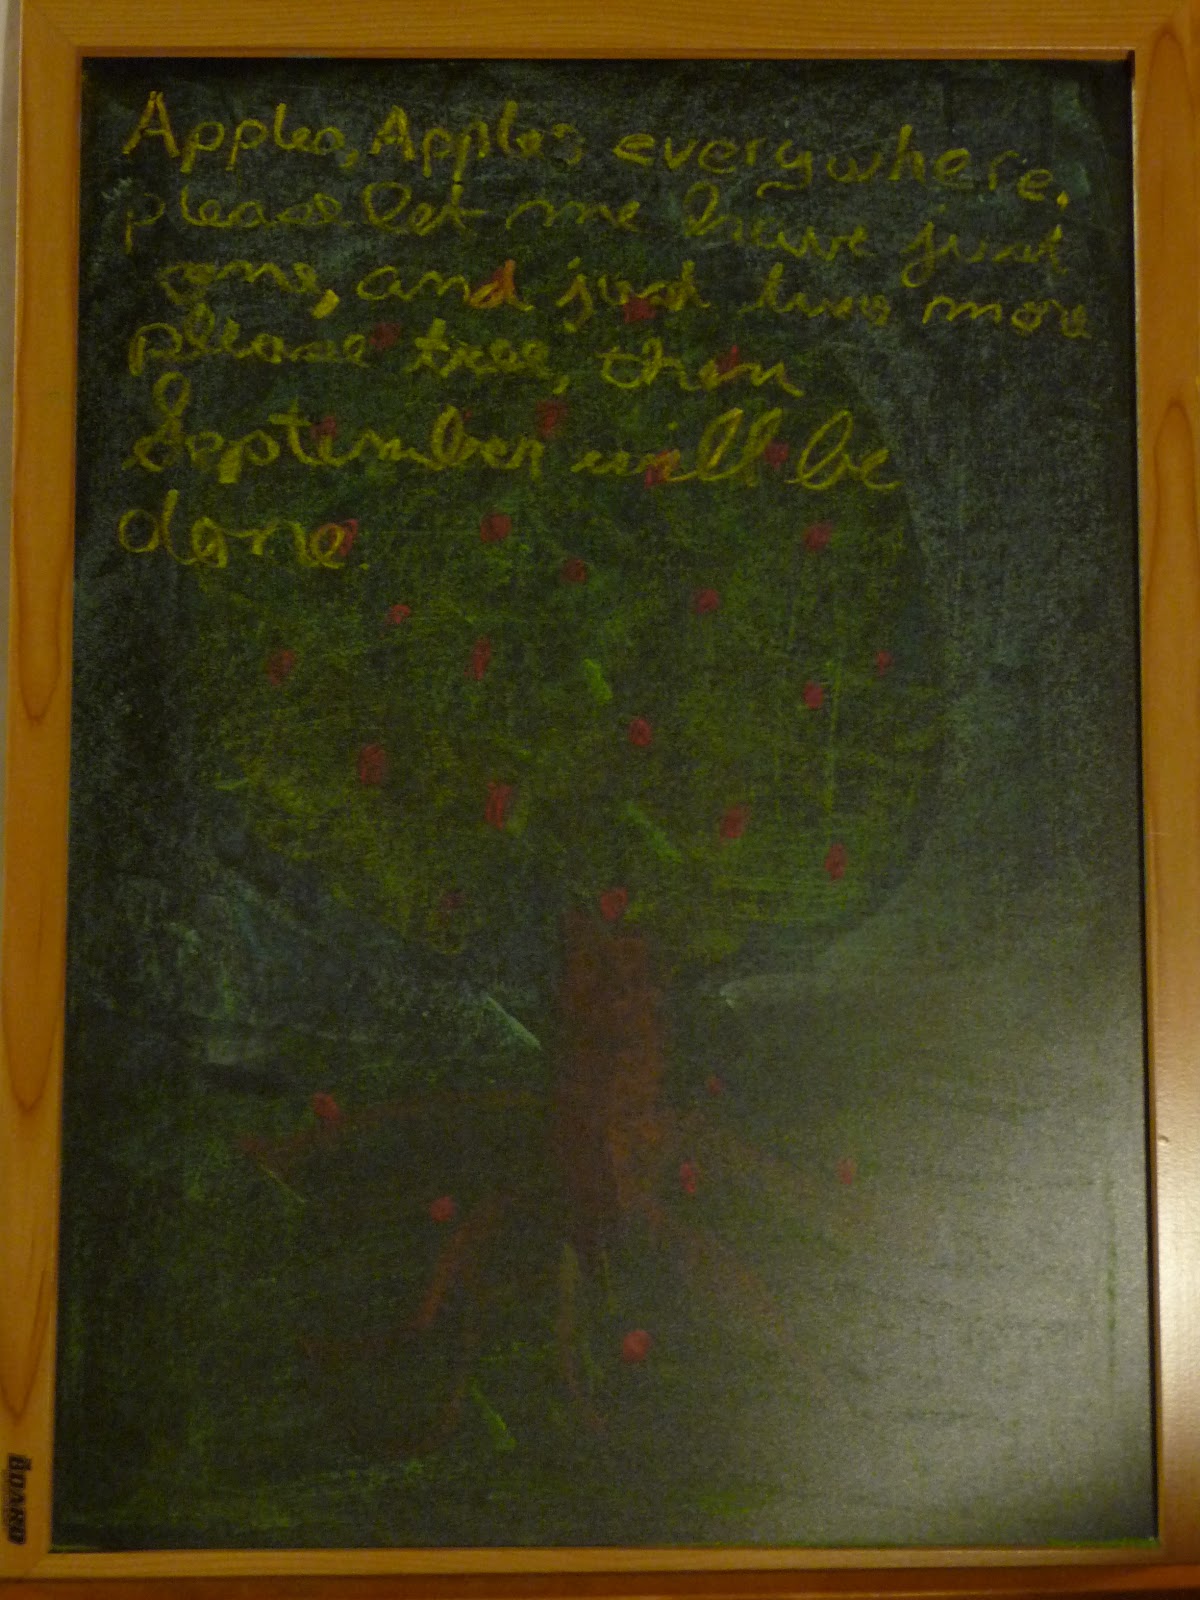 Apples, Apples everywhere,
please let me have just
one, and just two more
please tree, then
September will be
done.
BOARD